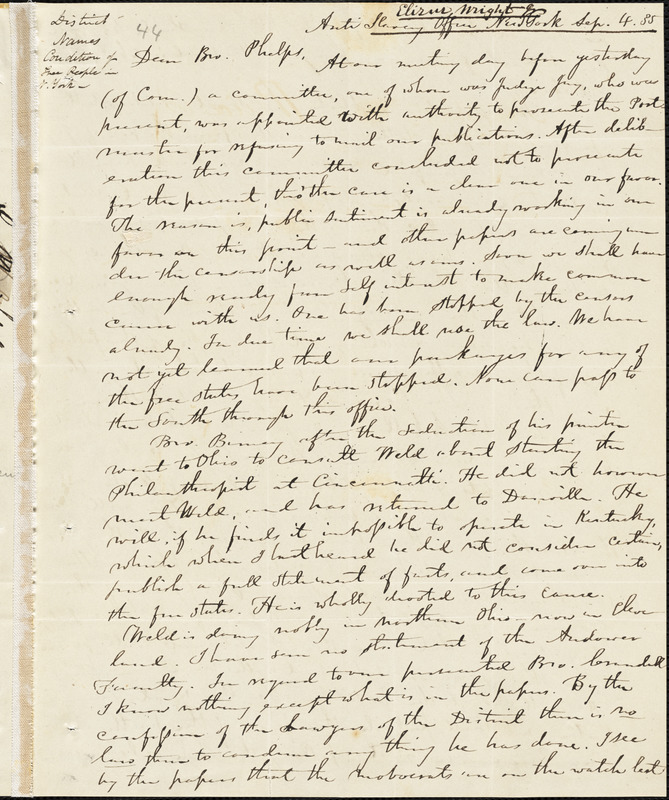 Elizur Wright Jr
District
Names
Condition of
Free People in
N. York
44
Anti Slavery Office New York Sep. 4. 35
Dear Bro. Phelps,
At our meeting day before yesterday
(of Com.) a committee, one of whom was Judge Jay, who was
present, was appointed with authority to prosecute the Post-
master for refusing to mail our publications. After delib-
eration this committee concluded not to prosecute
for the present, tho' the case is a clear one in our favor.
The reason is, public sentiment is already working in our
favor on this point — and other papers are coming un-
der the censorship as well as ours. Soon we shall have
enough ready from self interest to make common
cause with us. One has been stopped by the censors
already. In due time we shall use the law. We have
not yet learned that our packages for any of
the free states have been stopped. None can pass to
the South through this office.
Bro. Birney after the seduction of his printer
went to Ohio to consult Weld about starting the
Philanthropist at Cincinnatti. He did not however
meet Weld, and has returned to Danville. He
will, if he finds it impossible to operate in Kentucky,
which when I last heard he did not consider certain,
publish a full statement of facts, and come over into
the free states. He is wholly devoted to this cause.
Weld is doing nobly in northern Ohio — now in Cleve-
land. I have seen no statement of the Andover
Faculty. In regard to our persecuted Bro. Crandall
I know nothing except what is in the papers. By the
confession of the Lawyers of the District there is no
law there to condemn any thing he has done. I see
by the papers that the mobocrats are on the watch lest